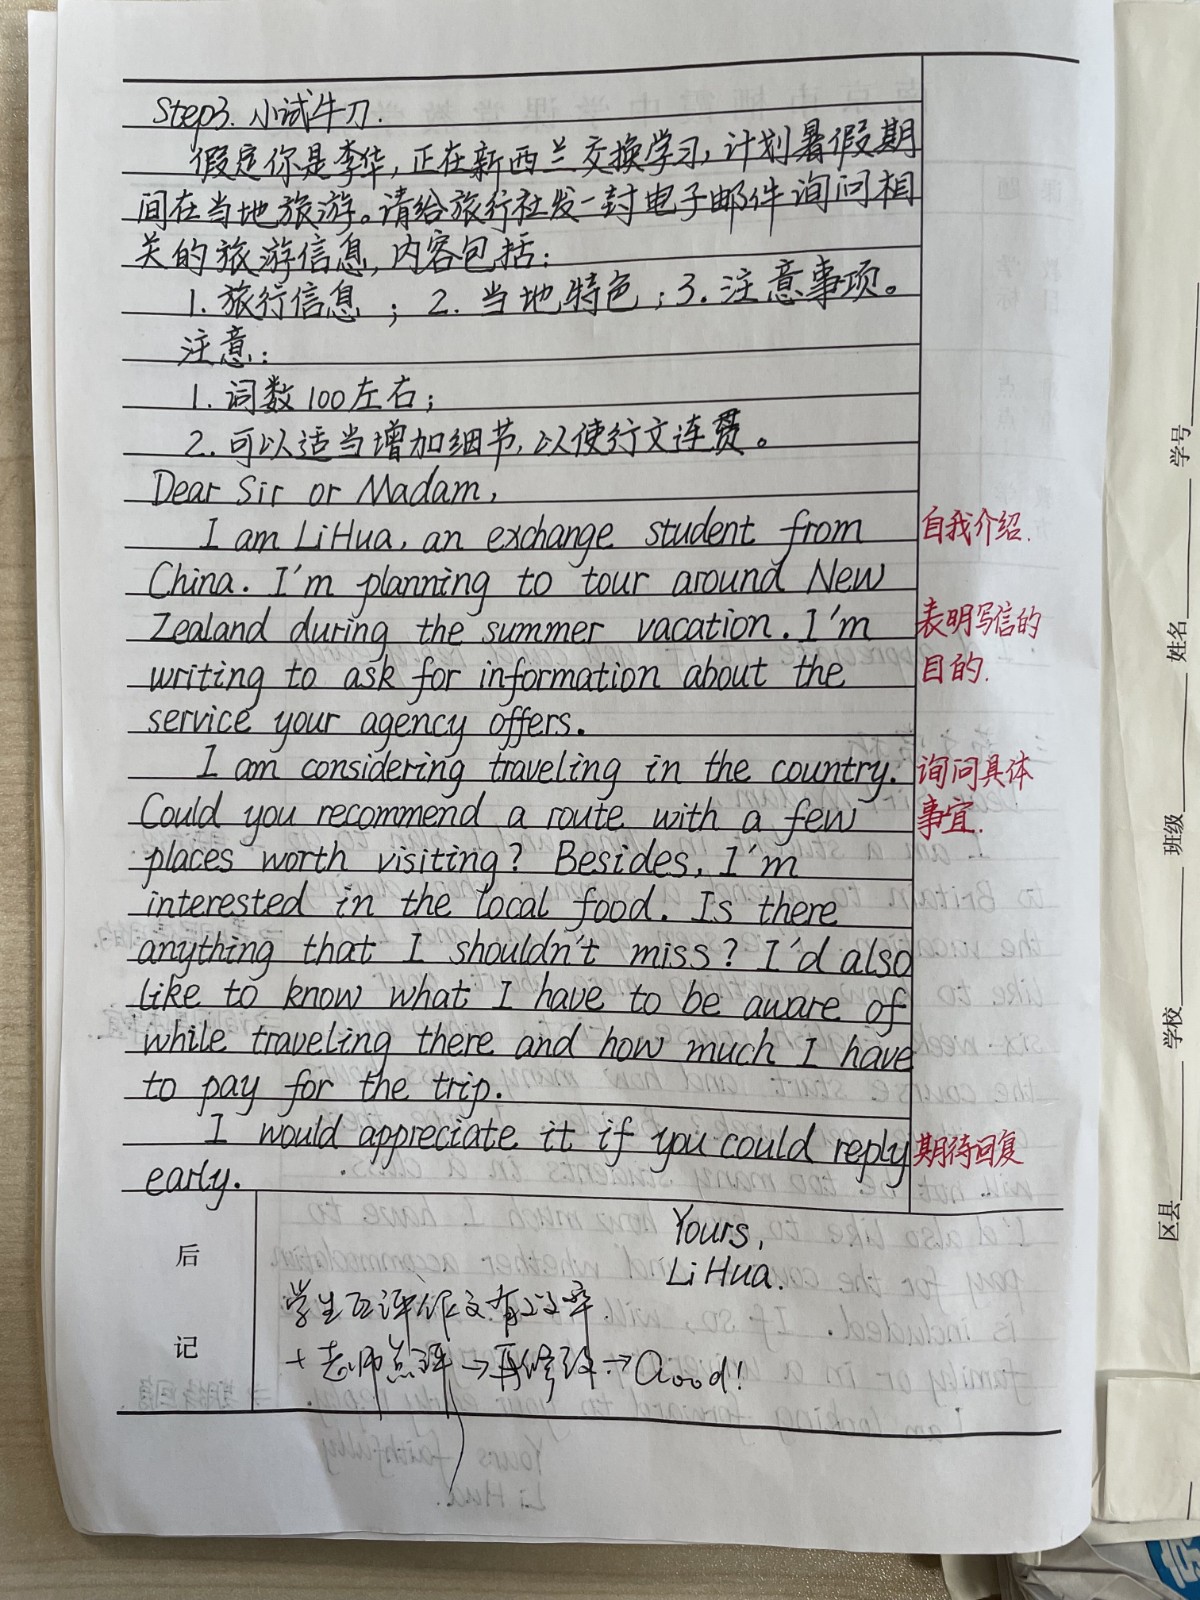 Step3. 小试牛刀.
假定你是李华,正在新西兰交换学习,计划暑假期
间在当地旅游。请给旅行社发一封电子邮件询问相
关的旅游信息,内容包括:
1. 旅行信息 ; 2. 当地特色 ; 3. 注意事项。
注意:
1. 词数100左右;
2. 可以适当增加细节,以使行文连贯。
Dear Sir or Madam,
I am Li Hua, an exchange student from
自我介绍.
China. I'm planning to tour around New
Zealand during the summer vacation. I'm
表明写信的
writing to ask for information about the
目的.
service your agency offers.
I am considering traveling in the country.
询问具体
Could you recommend a route with a few
事宜.
places worth visiting? Besides, I'm
interested in the local food. Is there
anything that I shouldn't miss? I'd also
like to know what I have to be aware of
while traveling there and how much I have
to pay for the trip.
I would appreciate it if you could reply
期待回复
early.
Yours,
Li Hua.
后
记
学生互评作文有
+老师点评→再修改→Good!
学号
姓名
班级
学校
区县